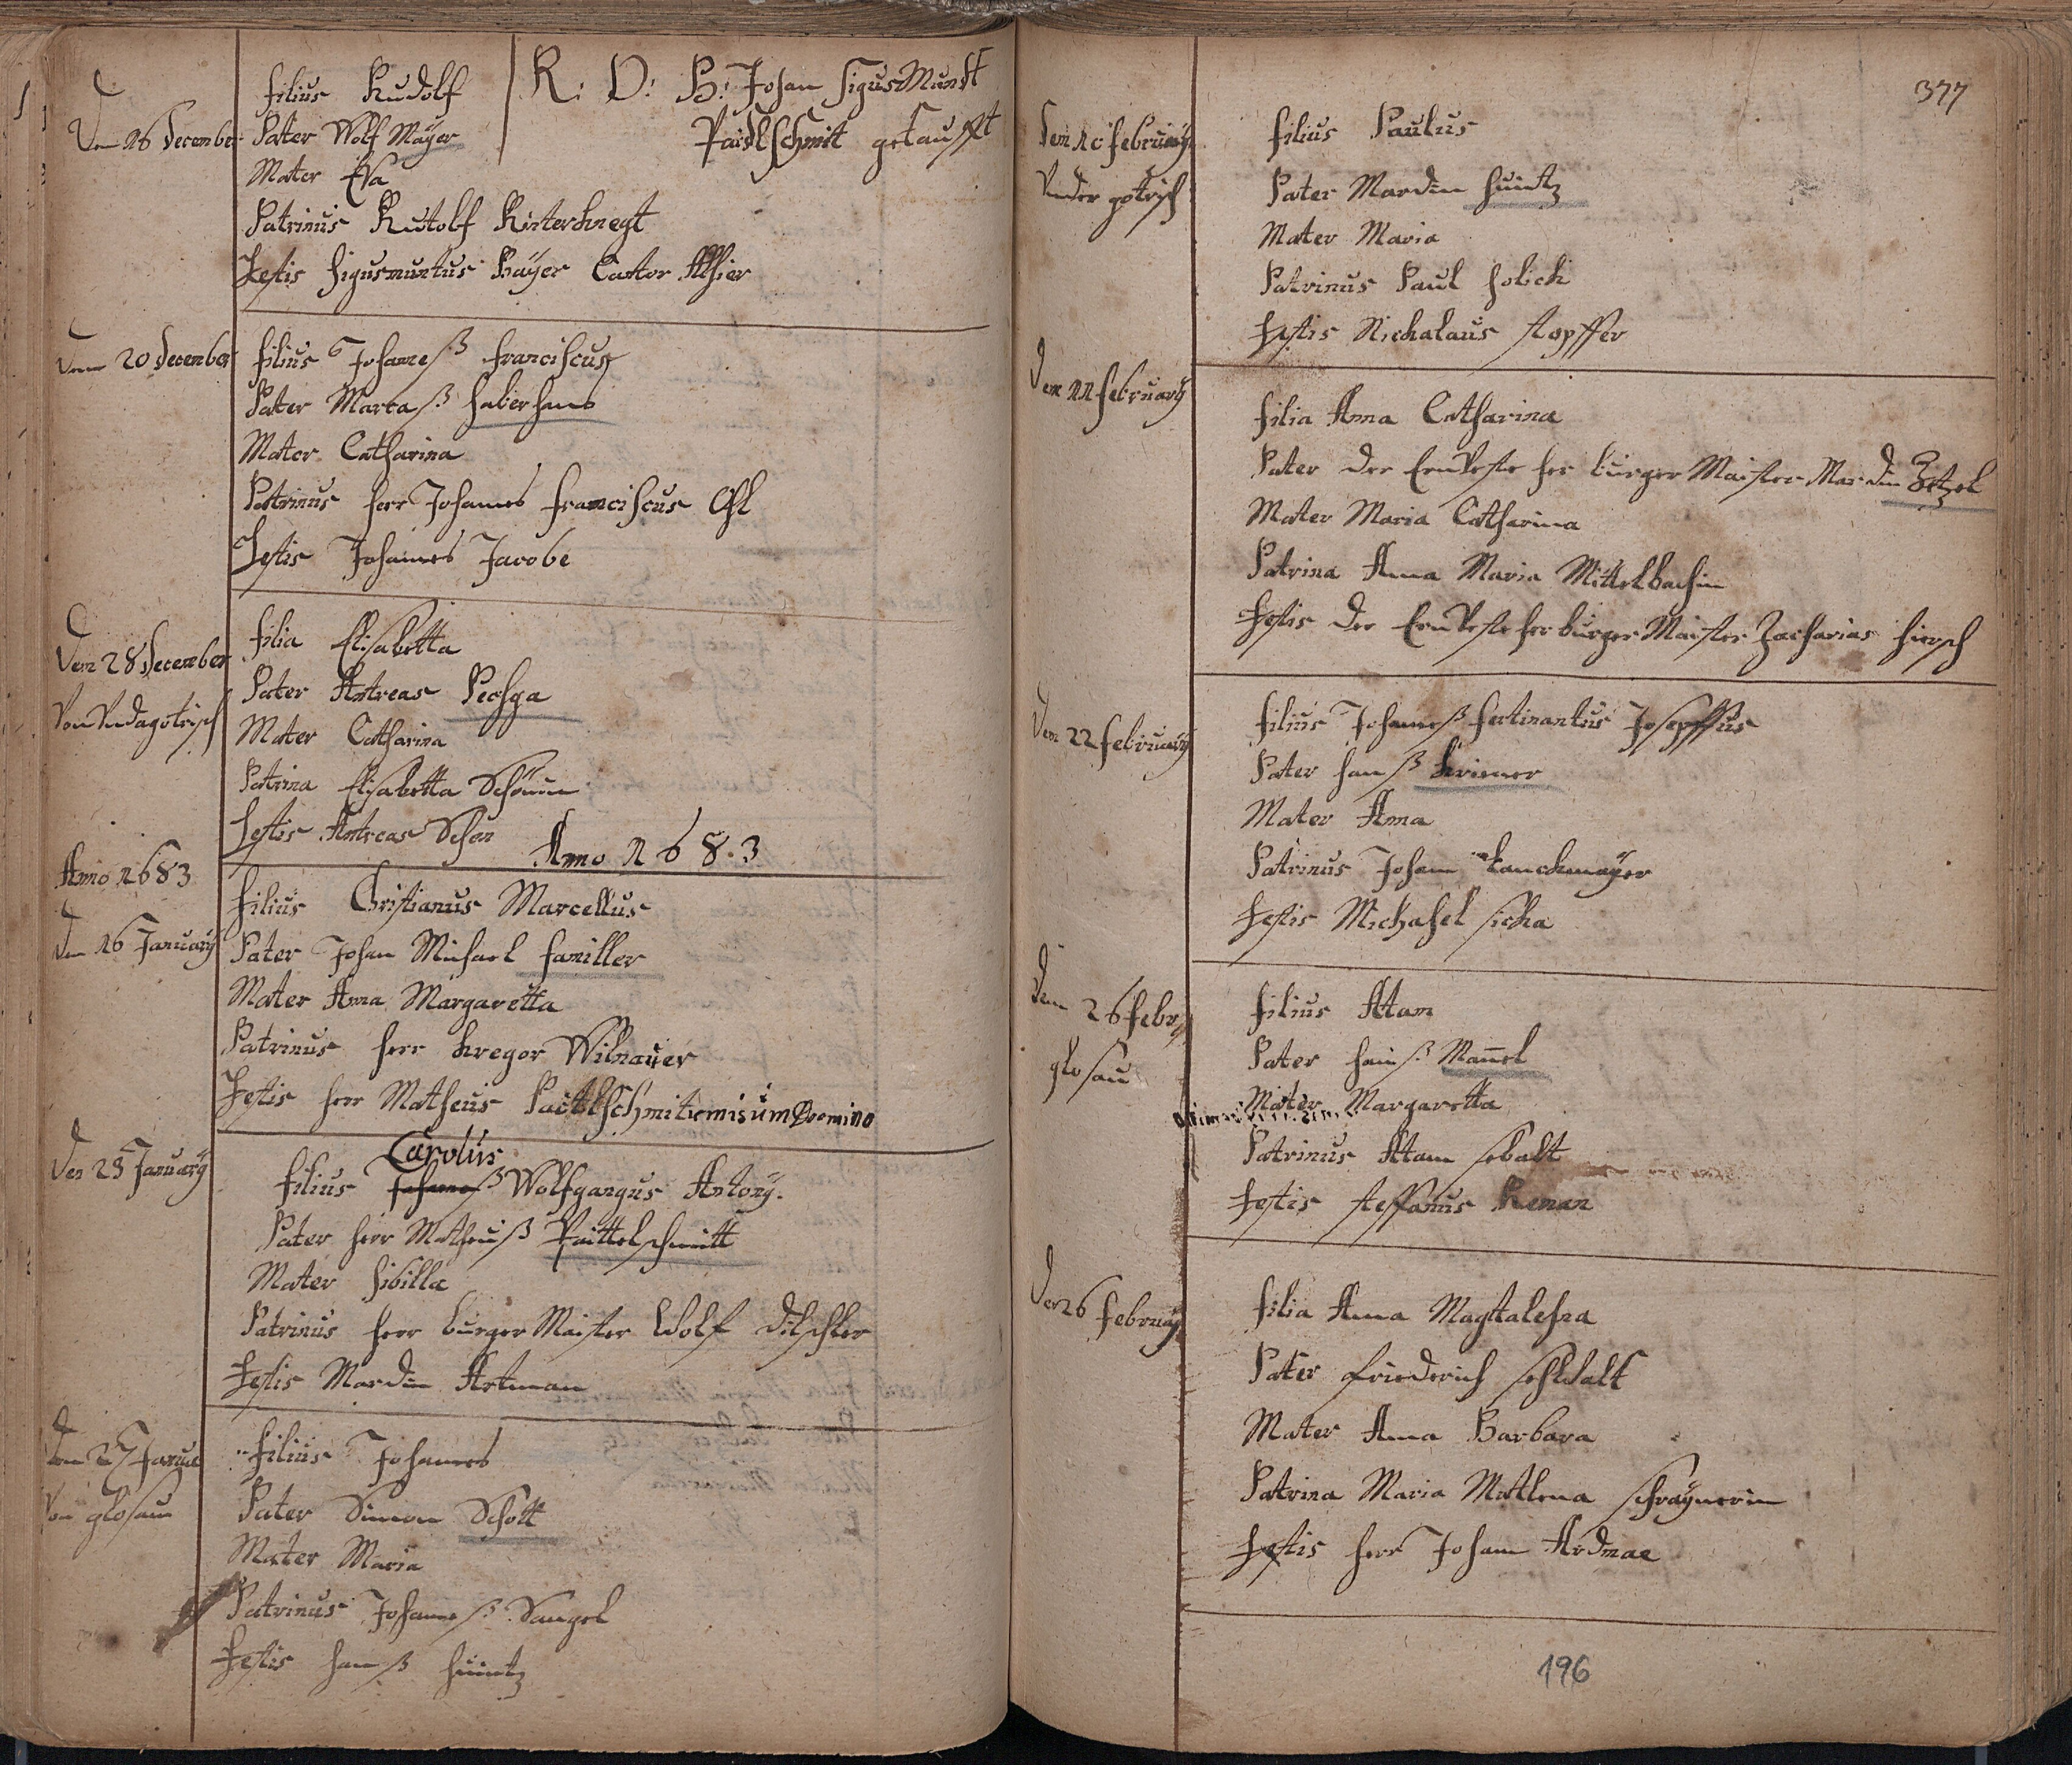 Den 16 December
filius Rudolf
R: D: H: Johan SigusMundt
Paidlschmit getaufft
Pater Wolf Mayer
Mater Eva
Patrinus Rutolf
Testis Sigusmuntus Bayer Cantor Alhier
Den 20 December
filius Johaneß Franciscus
Pater Martaß haberhans
Mater Catharina
Patrinus herr Johannes Franciscus
Testis Johannes Jacobe
Den 28 December
Von Vndagotrisch
filia Elisabetta
Pater Antreas Pechga
Mater Catharina
Patrina Elisabetta Schönin
Testis Antreas Schen
Anno 1683
Anno 1683
Den 16 January
filius Christianus Marcellus
Pater Johan Michael familler
Mater Anna Margaretta
Patrinus herr kregor Wilnauer
Testis herr Matheus
Den 23 January
Carolus
filius Johaneß Wolfgangus Antony.
Pater herr Matheuiß Paittelschmitt
Mater Sibilla
Patrinus herr burger Maister Wolf Dilschler
Testis Mardin Artman
Den 27 Januar
Von glosau
filius Johannes
Pater Simon Schott
Mater Maria
Patrinus Johaneß Sangel
Testis hanß huintz
377
Den 10 february
Vnder gotrisch
filius Paulus
Pater Mardin huintz
Mater Maria
Patrinus Paul holick
Testis Nichalaus stopffer
Den 11 february
filia Anna Catharina
Pater der ErnVeste her burger Maister Mardin Zetzel
Mater Maria Catharina
Patrina Anna Maria Mittelbachin
Testis der ErnVeste her burger Maister Zacharias hiersch
Den 22 february
filius Johaneß fertinantus Josepffus
Pater hanß kriener
Mater Anna
Patrinus Johann Lanckmayer
Testis Michahel sicka
Den 26 febr
glosau
filius Atam
Pater hanß Mannel
Mater Margaretta
Patrinus Atam sebalt
Testis steffanus Renan
Den 26 february
filia Anna Magtalehna
Pater friederich sehbalt
Mater Anna Barbara
Patrina Maria Matlena schraynerin
Testis herr Johann Ardmae
196